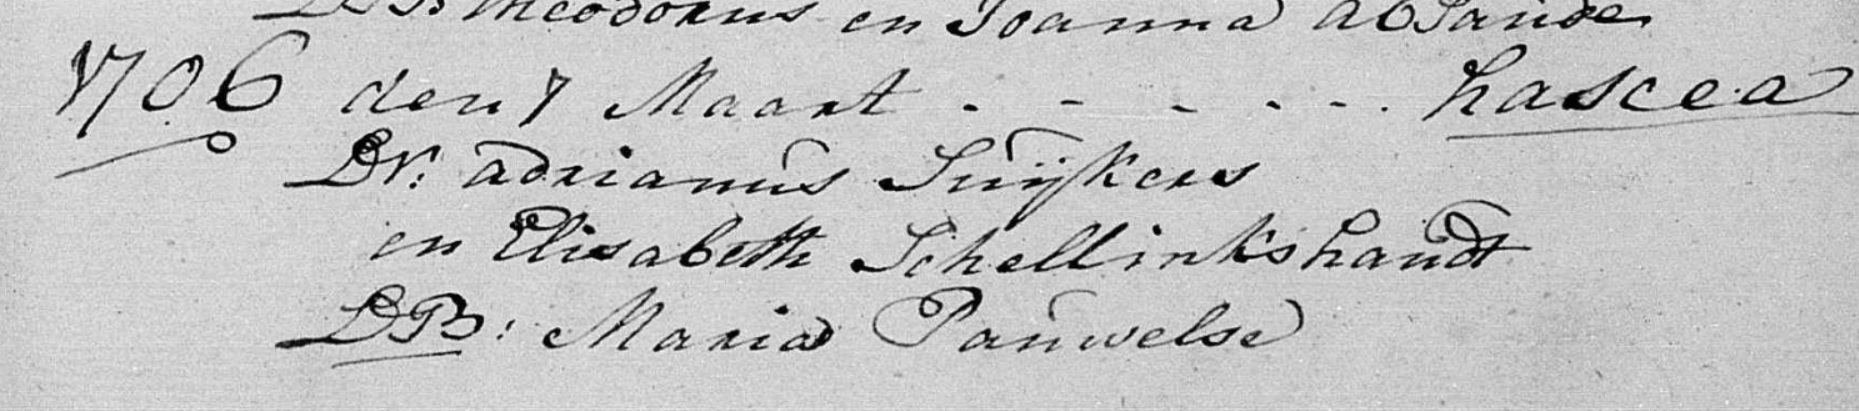 DB: Theodorus en Joanna abSande
1706 den 7 Maart - - - - - - hascea
Dr: adrianus Suijkers
en Elisabeth Schellinkshandt
DB: Maria Pauwelse